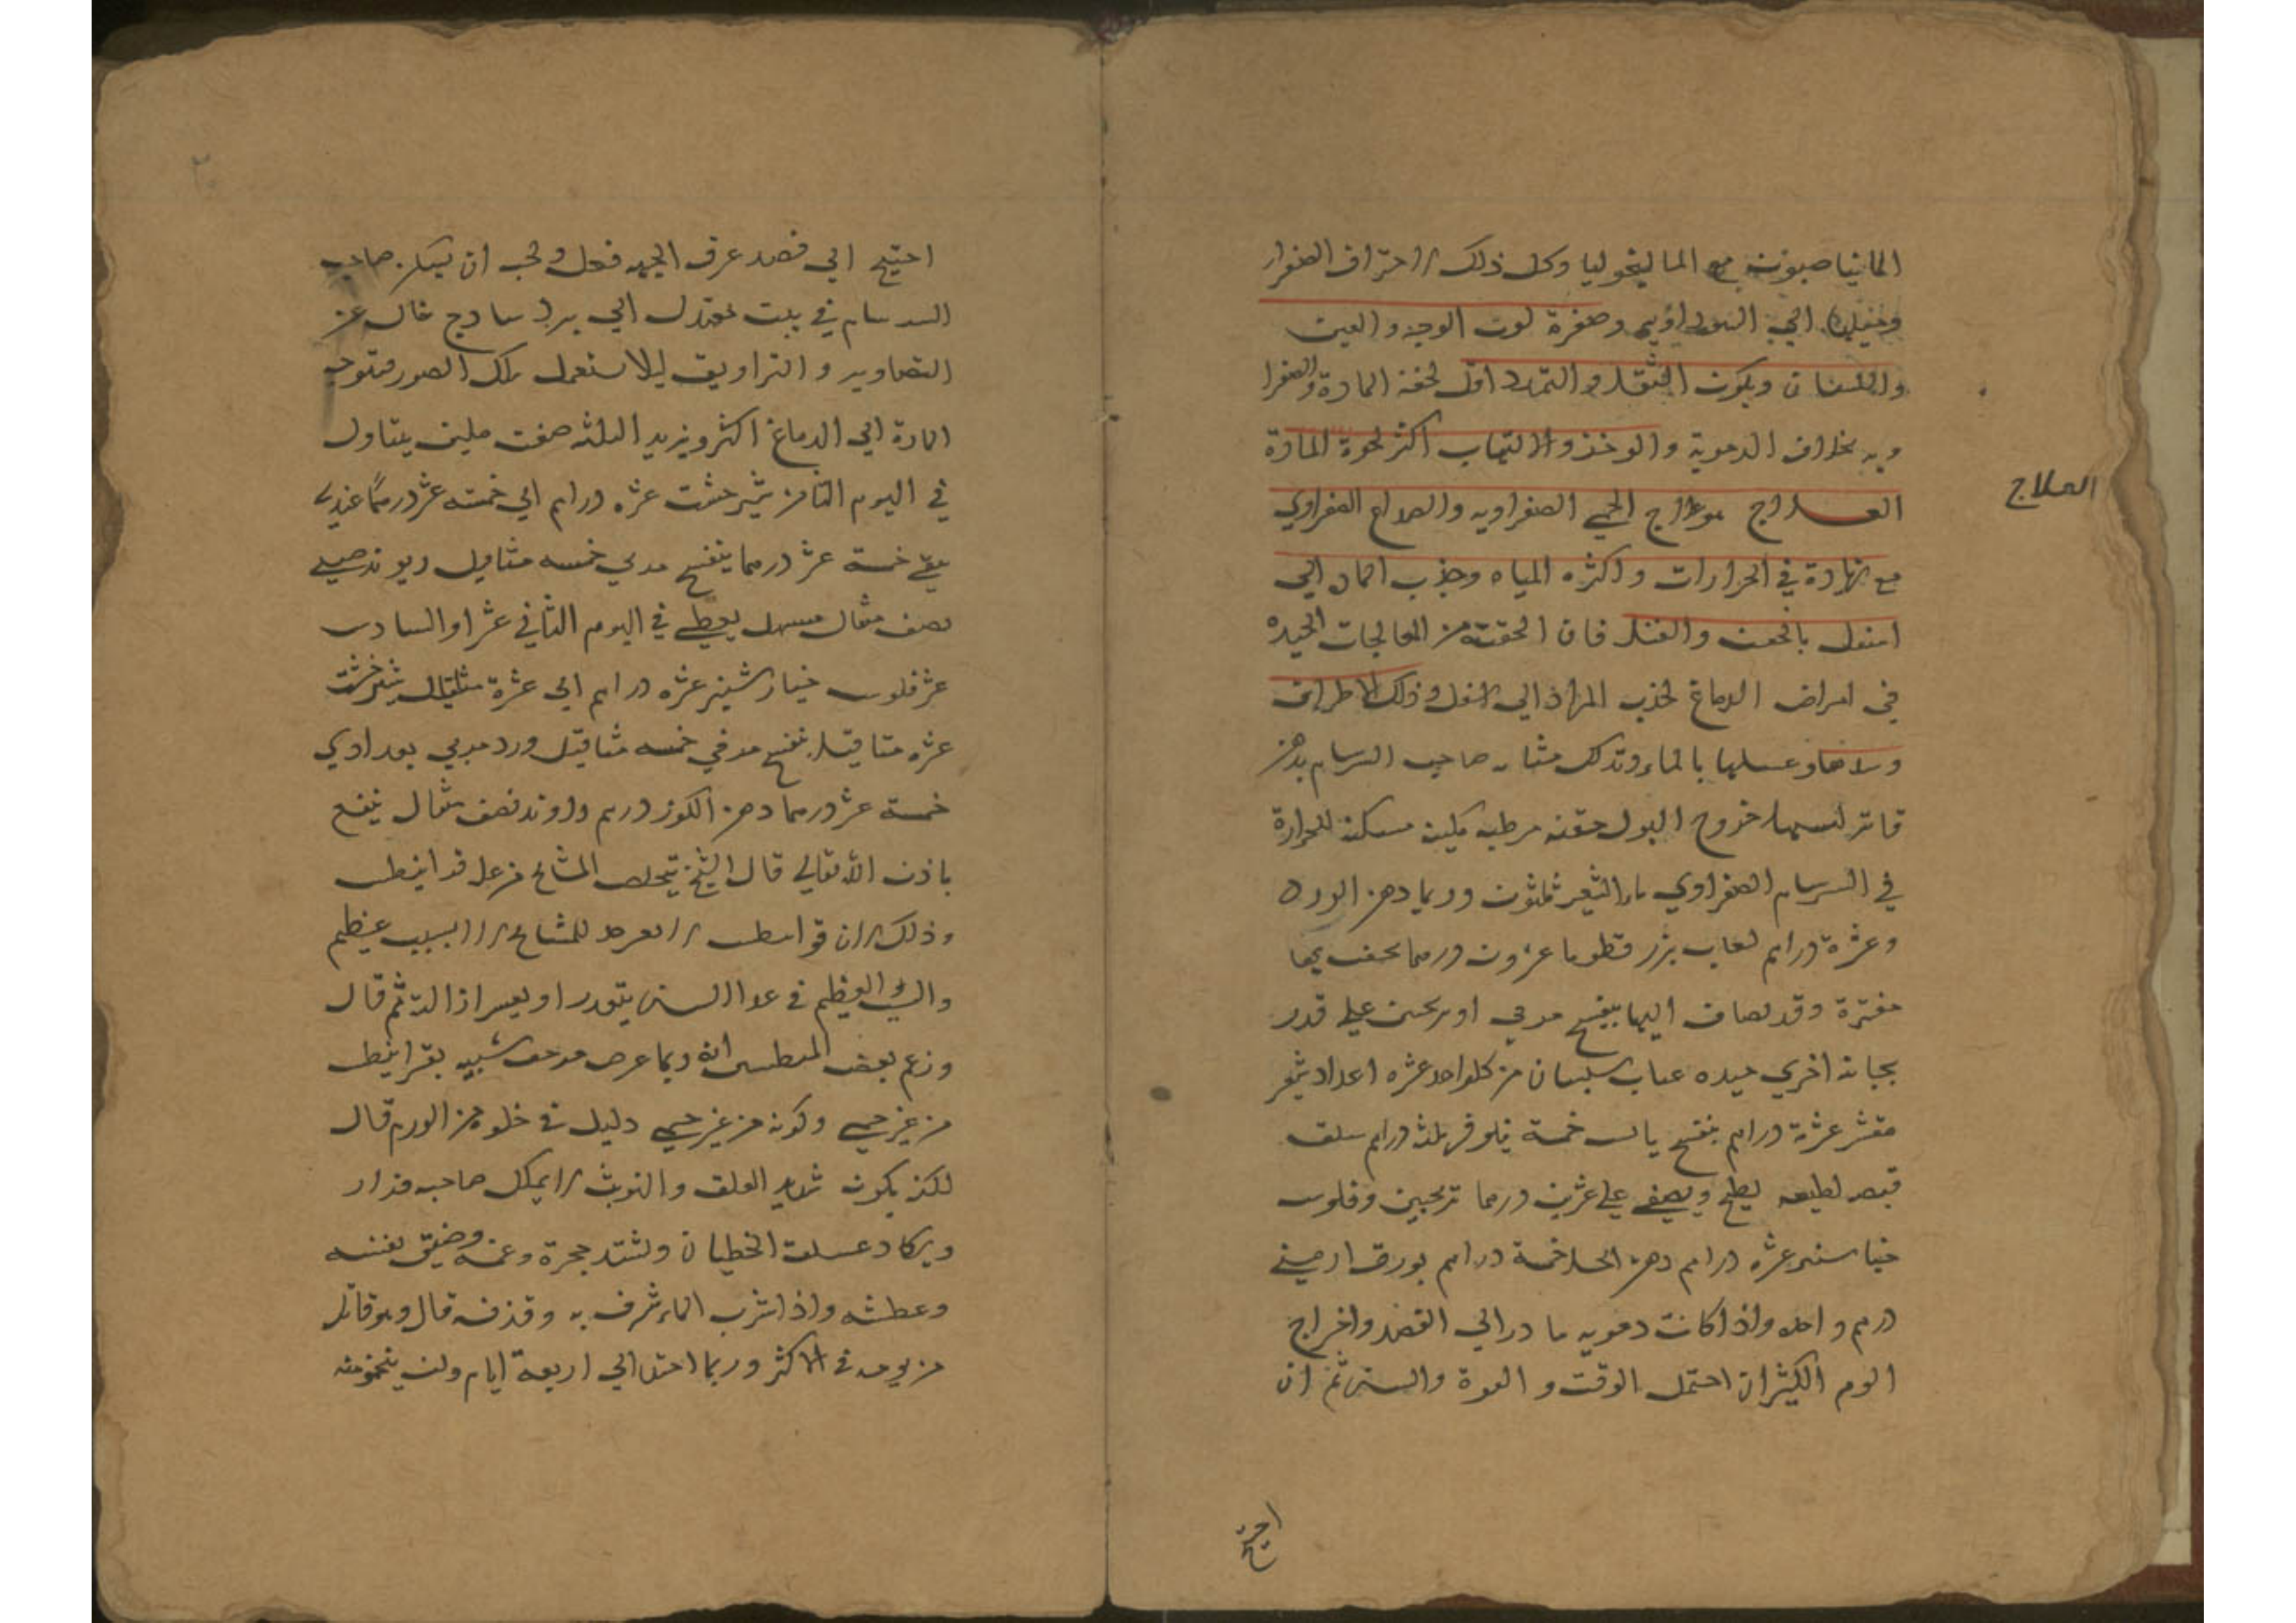 المانيا صبونه مع الماليخوليا وكل ذلك لاحتراق الصفرا
الي السوداويه وصفرة لون الوجه والعين
واللسان ويكون الثقل والتمدد اقل لخفة المادة والصفرا
ويه بخلاف الدموية والوخذ والالتهاب اكثر لحدة المادة
العلاج
العلاج هو علاج الحمي الصفراويه والصداع الصفراوي
مع زيادة في الحرارات واكثره المياه وجذب الماده الي
اسفل بالحقن والفتل فان الحقنة من المعالجات الجيده
في امراض الدماغ لجذب المواد الي اسفل وذلك الاطراف
وغسلها بالماء وتدلك مثانه صاحب السرسام بدهن
فاتر ليسهل خروج البول حقنه مرطبه ملينه مسكنه للحرارة
في السرسام الصفراوي ماء الشعير ثلثون وربما دهن الورد
وعشرة دراهم لعاب بزر قطونا عشرون درهما يحقن بها
مفترة وقد يضاف اليها بنفسج مربي او يحسن علي قدر
اخري جيده عناب سبستان من كل واحد عشره اعداد شعير
مقشر عشرة دراهم بنفسج يابس خمسة نيلوفر ثلثة دراهم سلق
قبضه لطيفه يطبخ ويصفي علي عشرين درهما ترنجبين وفلوس
خيارشنبر عشره دراهم دهن الحل خمسة دراهم بورق ارميني
درهم واحد واذا كانت دمويه بادر الي الفصد واخراج
الدم الكثير ان احتمل الوقت و القوة والسن ثم ان
احتيج
احتيج الي فصد عرق الجبهه فعل ويجب ان يسكن صاحب
السرسام في بيت معتدل الي برد ساذج خال عن
التصاوير والتزاويق ليلا يستعمل تلك الصور فتتوجه
المادة الي الدماغ اكثر ويزيد البلثه صفت ملين يتناول
في اليوم الثامن شيرخشت عشره دراهم الي خمسته عشر درهما
خمسة عشر درهما بنفسج مربي خمسه مثاقيل ريوند صيني
نصف مثقال مسهل يعطي في اليوم الثاني عشر او السادس
عشر فلوس خيارشنبر عشره دراهم الي عشرة مثاقيل شيرخشت
عشره مثاقيل بنفسج مربي خمسه مثاقيل ورد مربي بغدادي
خمسة عشر درهما دهن اللوز درهم راوند نصف مثقال ينفع
باذن الله تعالي قال الشيخ يتخلص المشايخ من علة قرانيطس
وذلك لان قرانيطس لا تعرض للمشايخ الا لسبب عظيم
والسبب العظيم في هذا السن يتعذر او يعسر ازالته ثم قال
وزعم بعض المتطببين انه ربما عرض مرض شبيه بقرانيطس
من غير حمي وكونه من غير حمي دليل في خلوه من الورم قال
لكنه يكون شديد القلق والتوثب لا يملك صاحبه قرار
ويكاد يتسلق الحيطان ويشتد ضجره وغمه وضيق نفسه
وعطشه واذا شرب الماء شرق به وقذفه قال وهو قاتل
من يومه في الاكثر وربما امتد الي اربعة ايام ولن ينجو منه